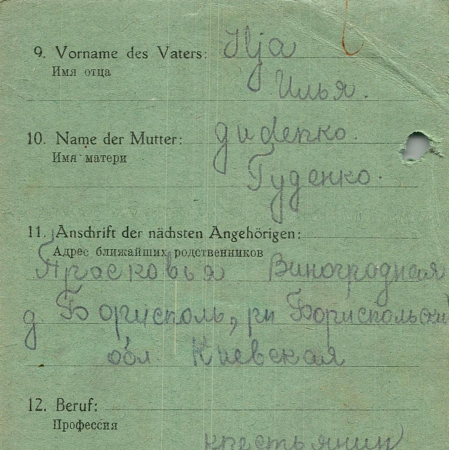 9. Vorname des Vaters: Ilja
Имя отца
Илья.
10. Name der Mutter: gudenko.
Имя матери
Гуденко.
11. Anschrift der nächsten Angehörigen:
Адрес ближайших родственников
Прасковья Виноградная
д. Борисполь, рн Бориспольский
обл Киевская
12. Beruf:
Профессия
крестьянин